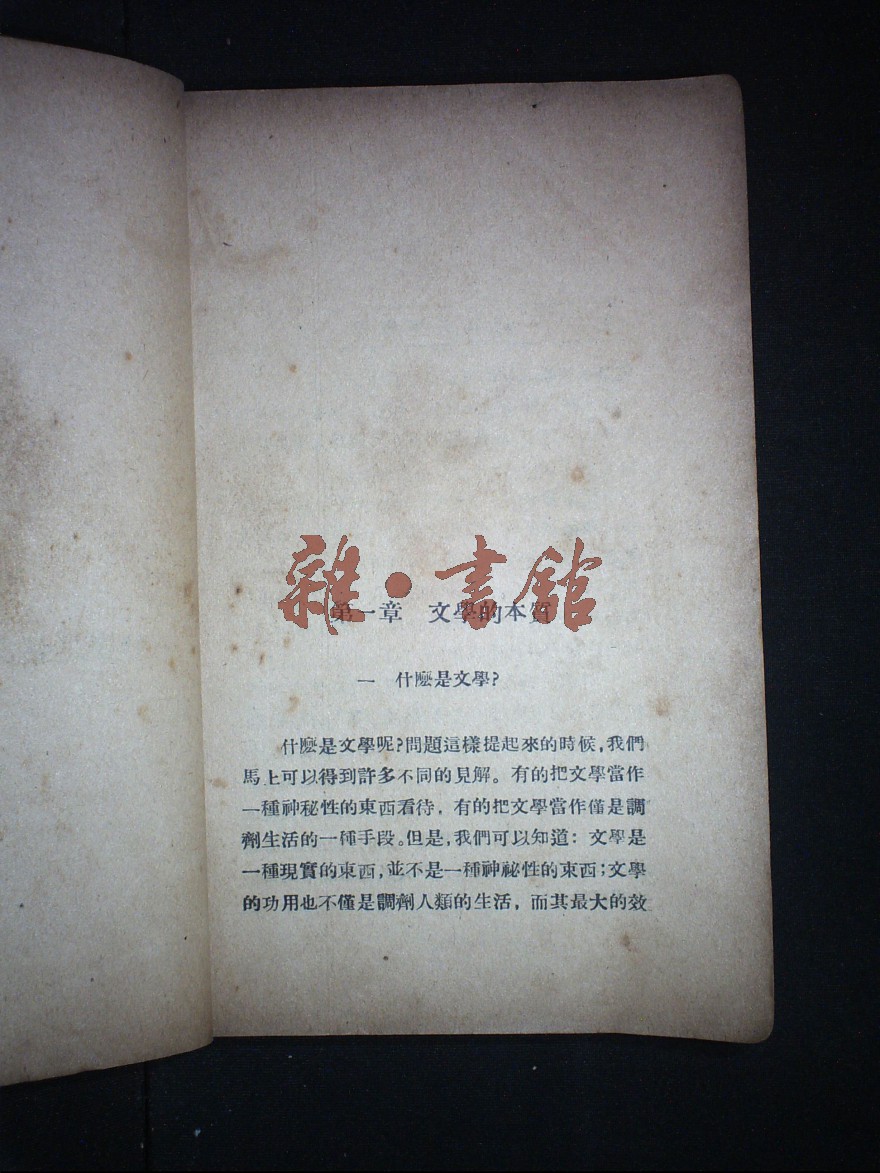 雜·書館
第一章　文學的本質
一　什麽是文學?
什麽是文學呢?問題這樣提起來的時候,我們
馬上可以得到許多不同的見解。有的把文學當作
一種神秘性的東西看待,有的把文學當作僅是調
劑生活的一種手段。但是,我們可以知道:文學是
一種現實的東西,並不是一種神祕性的東西;文學
的功用也不僅是調劑人類的生活,而其最大的效